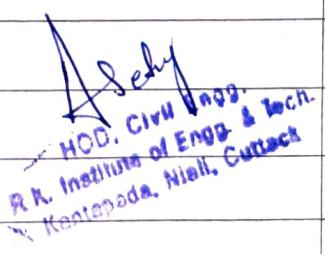 HOD, Civil Engg.
R.K. Institute of Engg. & Tech.
Kantapada, Niali, Cuttack